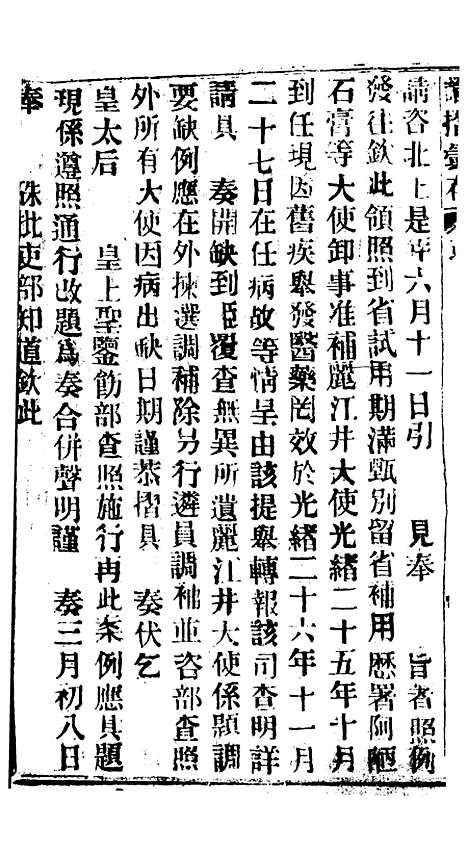 請咨北上是年六月十一日引　見奉　旨着照例
發往欽此領照到省試用期滿甄別留省補用歷署阿陋
石膏等大使卸事准補麗江井大使光緒二十五年十月
到任現因舊疾舉發醫藥罔效於光緒二十六年十一月
二十七日在任病故等情呈由該提舉轉報該司查明詳
請具　奏開缺到臣覆查無異所遺麗江井大使係題調
要缺例應在外揀選調補除另行遴員調補並咨部查照
外所有大使因病出缺日期謹恭摺具　奏伏乞
皇太后　皇上聖鑒飭部查照施行再此案例應具題
現係遵照通行改題爲奏合併聲明謹　奏三月初八日
奉　硃批吏部知道欽此